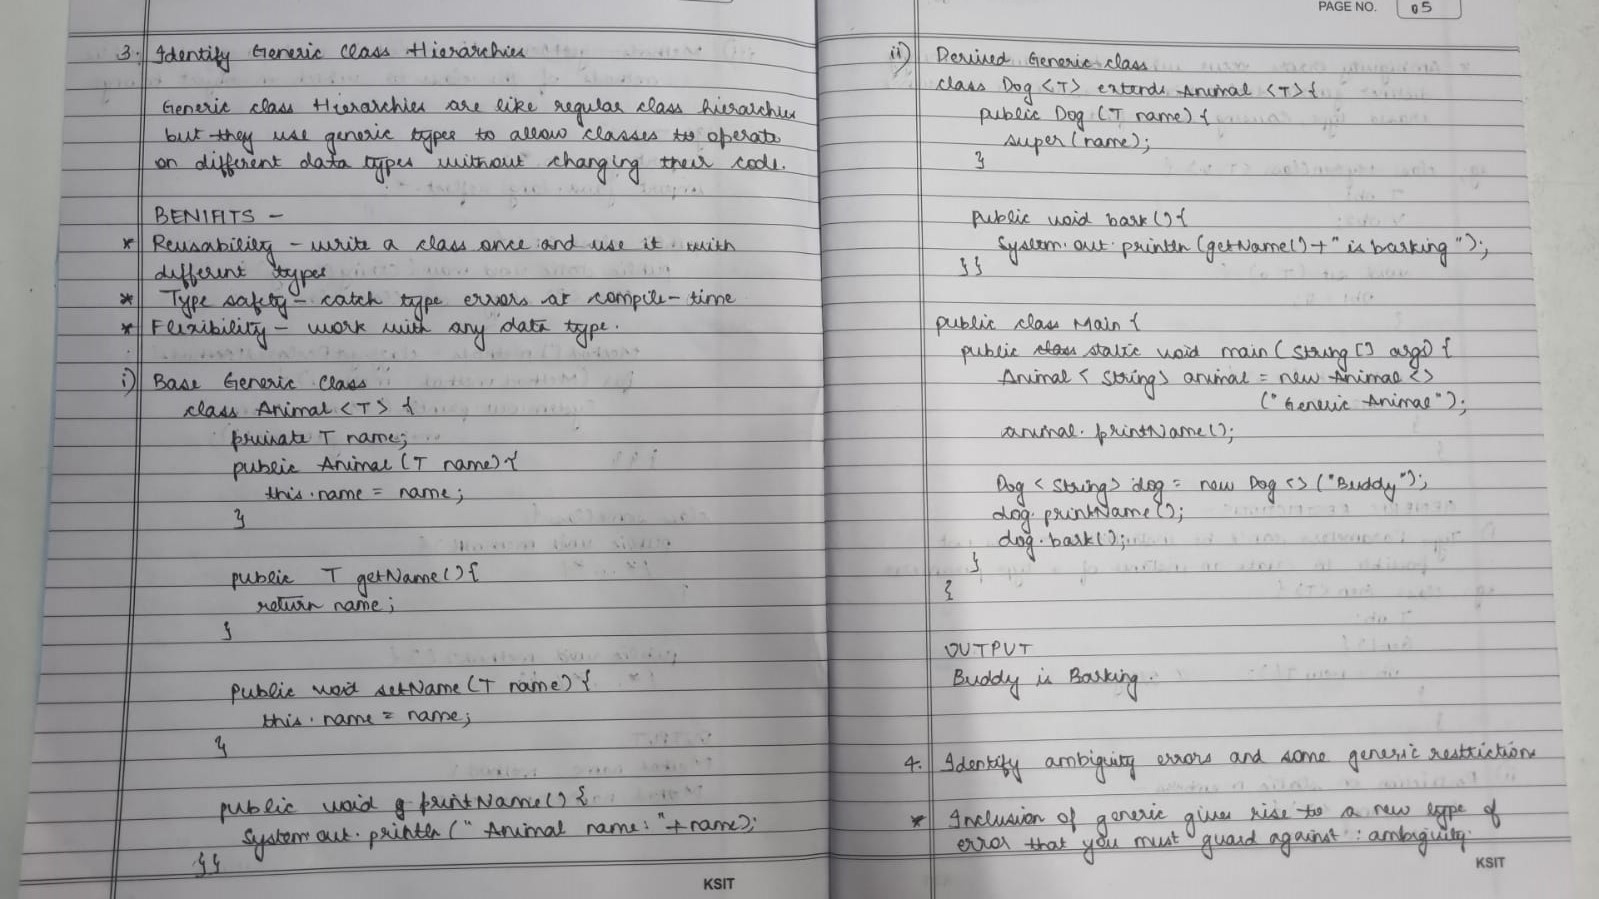 3. Identify Generic Class Hierarchies
Generic class Hierarchies are like regular class hierarchies
but they use generic types to allow classes to operate
on different data types without changing their code.
BENIFITS -
* Reusability - write a class once and use it with
different types
* Type safety - catch type errors at compile-time
* Flexibility - work with any data type.
i) Base Generic Class
class Animal <T> {
private T name;
public Animal (T name) {
this.name = name;
}
public T getName() {
return name;
}
public void setName (T name) {
this.name = name;
}
public void printName() {
System.out.println (" Animal name: "+name);
}}
KSIT
PAGE NO. 05
ii) Derived Generic class
class Dog <T> extends Animal <T> {
public Dog (T name) {
super (name);
}
public void bark () {
System.out.println (getName()+" is barking ");
}}
public class Main {
public static void main (String [] args) {
Animal < String> animal = new Animal <>
("Generic Animal");
animal.printName();
Dog < String> dog = new Dog <> ("Buddy");
dog.printName();
dog.bark();
}
{
OUTPUT
Buddy is Barking.
4. Identify ambiguity errors and some generic resttictions
* Inclusion of generic gives rise to a new type of
error that you must guard against : ambiguity.
KSIT